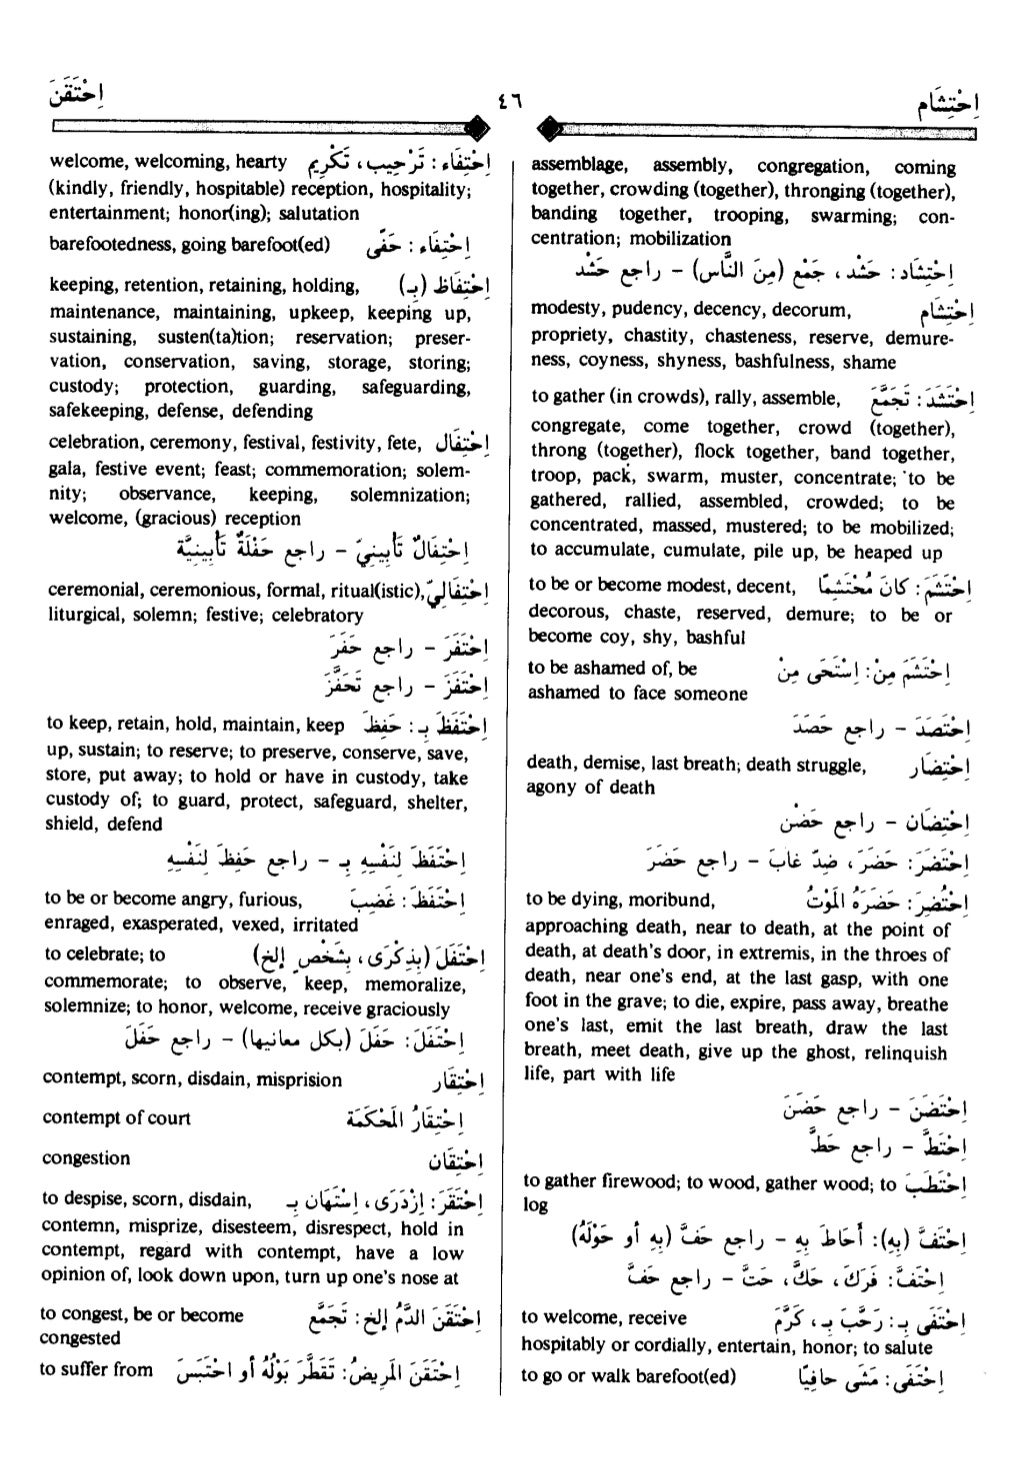 اِحْتِشَام
٤٦
اِحْتَقَنَ
assemblage, assembly, congregation, coming
together, crowding (together), thronging (together),
banding together, trooping, swarming; con-
centration; mobilization
اِحْتِشَاد: حَشْد، جَمْع (مِنَ النَّاس) – راجع حَشْد
اِحْتِشَام modesty, pudency, decency, decorum,
propriety, chastity, chasteness, reserve, demure-
ness, coyness, shyness, bashfulness, shame
اِحْتَشَدَ: تَجَمَّعَ to gather (in crowds), rally, assemble,
congregate, come together, crowd (together),
throng (together), flock together, band together,
troop, pack, swarm, muster, concentrate; to be
gathered, rallied, assembled, crowded; to be
concentrated, massed, mustered; to be mobilized;
to accumulate, cumulate, pile up, be heaped up
اِحْتَشَمَ: كانَ مُحْتَشِمًا to be or become modest, decent,
decorous, chaste, reserved, demure; to be or
become coy, shy, bashful
اِحْتَشَمَ مِنْ: اِسْتَحَى مِنْ to be ashamed of, be
ashamed to face someone
اِحْتَصَدَ – راجع حَصَدَ
اِحْتِضَار death, demise, last breath; death struggle,
agony of death
اِحْتِضَان – راجع حَضْن
اِحْتَضَرَ: حَضَرَ، ضِدّ غابَ – راجع حَضَرَ
اِحْتُضِرَ: حَضَرَهُ المَوْتُ to be dying, moribund,
approaching death, near to death, at the point of
death, at death's door, in extremis, in the throes of
death, near one's end, at the last gasp, with one
foot in the grave; to die, expire, pass away, breathe
one's last, emit the last breath, draw the last
breath, meet death, give up the ghost, relinquish
life, part with life
اِحْتَضَنَ – راجع حَضَنَ
اِحْتَطَّ – راجع حَطَّ
اِحْتَطَبَ to gather firewood; to wood, gather wood; to
log
اِحْتَفَّ (بِهِ): أَحَاطَ بِهِ – راجع حَفَّ (بِهِ أو حَوْلَهُ)
اِحْتَفَّ: فَرَكَ، حَكَّ، حَتَّ – راجع حَفَّ
اِحْتَفَى بِـ: رَحَّبَ بِـ، كَرَّمَ to welcome, receive
hospitably or cordially, entertain, honor; to salute
اِحْتَفَى: مَشَى حافِيًا to go or walk barefoot(ed)
اِحْتِفَاء: تَرْحِيب، تَكْرِيم welcome, welcoming, hearty
(kindly, friendly, hospitable) reception, hospitality;
entertainment; honor(ing); salutation
اِحْتِفَاء: حَفًى barefootedness, going barefoot(ed)
اِحْتِفَاظ (بِـ) keeping, retention, retaining, holding,
maintenance, maintaining, upkeep, keeping up,
sustaining, susten(ta)tion; reservation; preser-
vation, conservation, saving, storage, storing;
custody; protection, guarding, safeguarding,
safekeeping, defense, defending
اِحْتِفَال celebration, ceremony, festival, festivity, fete,
gala, festive event; feast; commemoration; solem-
nity; observance, keeping, solemnization;
welcome, (gracious) reception
اِحْتِفَالٌ تَأْبِينيّ – راجع حَفْلَةٌ تَأْبِينِيَّة
اِحْتِفَالِيّ ceremonial, ceremonious, formal, ritual(istic),
liturgical, solemn; festive; celebratory
اِحْتَفَرَ – راجع حَفَرَ
اِحْتَفَزَ – راجع تَحَفَّزَ
اِحْتَفَظَ بِـ: حَفِظَ to keep, retain, hold, maintain, keep
up, sustain; to reserve; to preserve, conserve, save,
store, put away; to hold or have in custody, take
custody of; to guard, protect, safeguard, shelter,
shield, defend
اِحْتَفَظَ لِنَفْسِهِ بِـ – راجع حَفِظَ لِنَفْسِهِ
اِحْتَفَظَ: غَضِبَ to be or become angry, furious,
enraged, exasperated, vexed, irritated
اِحْتَفَلَ (بِذِكْرَى، بِشَخْصٍ إلخ) to celebrate; to
commemorate; to observe, keep, memoralize,
solemnize; to honor, welcome, receive graciously
اِحْتَفَلَ: حَفَلَ (بكل معانيها) – راجع حَفَلَ
اِحْتِقَار contempt, scorn, disdain, misprision
اِحْتِقَارُ المَحْكَمَة contempt of court
اِحْتِقَان congestion
اِحْتَقَرَ: اِزْدَرَى، اِسْتَهَان بِـ to despise, scorn, disdain,
contemn, misprize, disesteem, disrespect, hold in
contempt, regard with contempt, have a low
opinion of, look down upon, turn up one's nose at
اِحْتَقَنَ الدَّمُ إلخ: تَجَمَّعَ to congest, be or become
congested
اِحْتَقَنَ المَرِيضُ: تَقَطَّرَ بَوْلُهُ أو احْتَبَسَ to suffer from